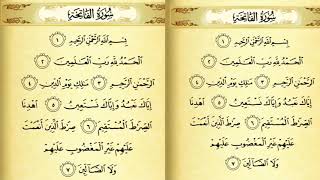 سُورَةُ الْفَاتِحَةِ
بِسْمِ اللَّهِ الرَّحْمَٰنِ الرَّحِيمِ ١
الْحَمْدُ لِلَّهِ رَبِّ الْعَٰلَمِينَ ٢
الرَّحْمَٰنِ الرَّحِيمِ ٣ مَٰلِكِ يَوْمِ الدِّينِ ٤
إِيَّاكَ نَعْبُدُ وَإِيَّاكَ نَسْتَعِينُ ٥ اهْدِنَا
الصِّرَٰطَ الْمُسْتَقِيمَ ٦ صِرَٰطَ الَّذِينَ أَنْعَمْتَ
عَلَيْهِمْ غَيْرِ الْمَغْضُوبِ عَلَيْهِمْ
وَلَا الضَّالِّينَ ٧
سُورَةُ الْفَاتِحَةِ
بِسْمِ اللَّهِ الرَّحْمَٰنِ الرَّحِيمِ ١
الْحَمْدُ لِلَّهِ رَبِّ الْعَٰلَمِينَ ٢
الرَّحْمَٰنِ الرَّحِيمِ ٣ مَٰلِكِ يَوْمِ الدِّينِ ٤
إِيَّاكَ نَعْبُدُ وَإِيَّاكَ نَسْتَعِينُ ٥ اهْدِنَا
الصِّرَٰطَ الْمُسْتَقِيمَ ٦ صِرَٰطَ الَّذِينَ أَنْعَمْتَ
عَلَيْهِمْ غَيْرِ الْمَغْضُوبِ عَلَيْهِمْ
وَلَا الضَّالِّينَ ٧